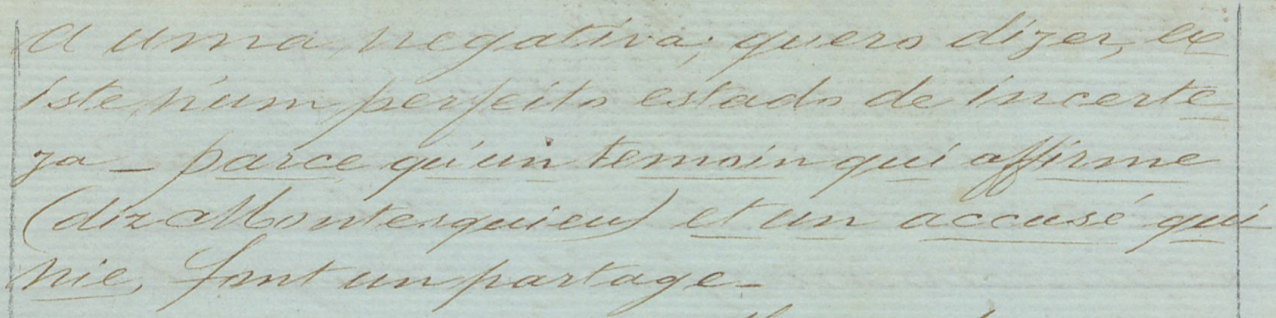 a uma negativa; quero dizer, ex
iste n'um perfeito estado de incerte
za - parce qu'un temoin qui affirme
(diz Montesquieu) et un accusé qui
nie, font un partage -